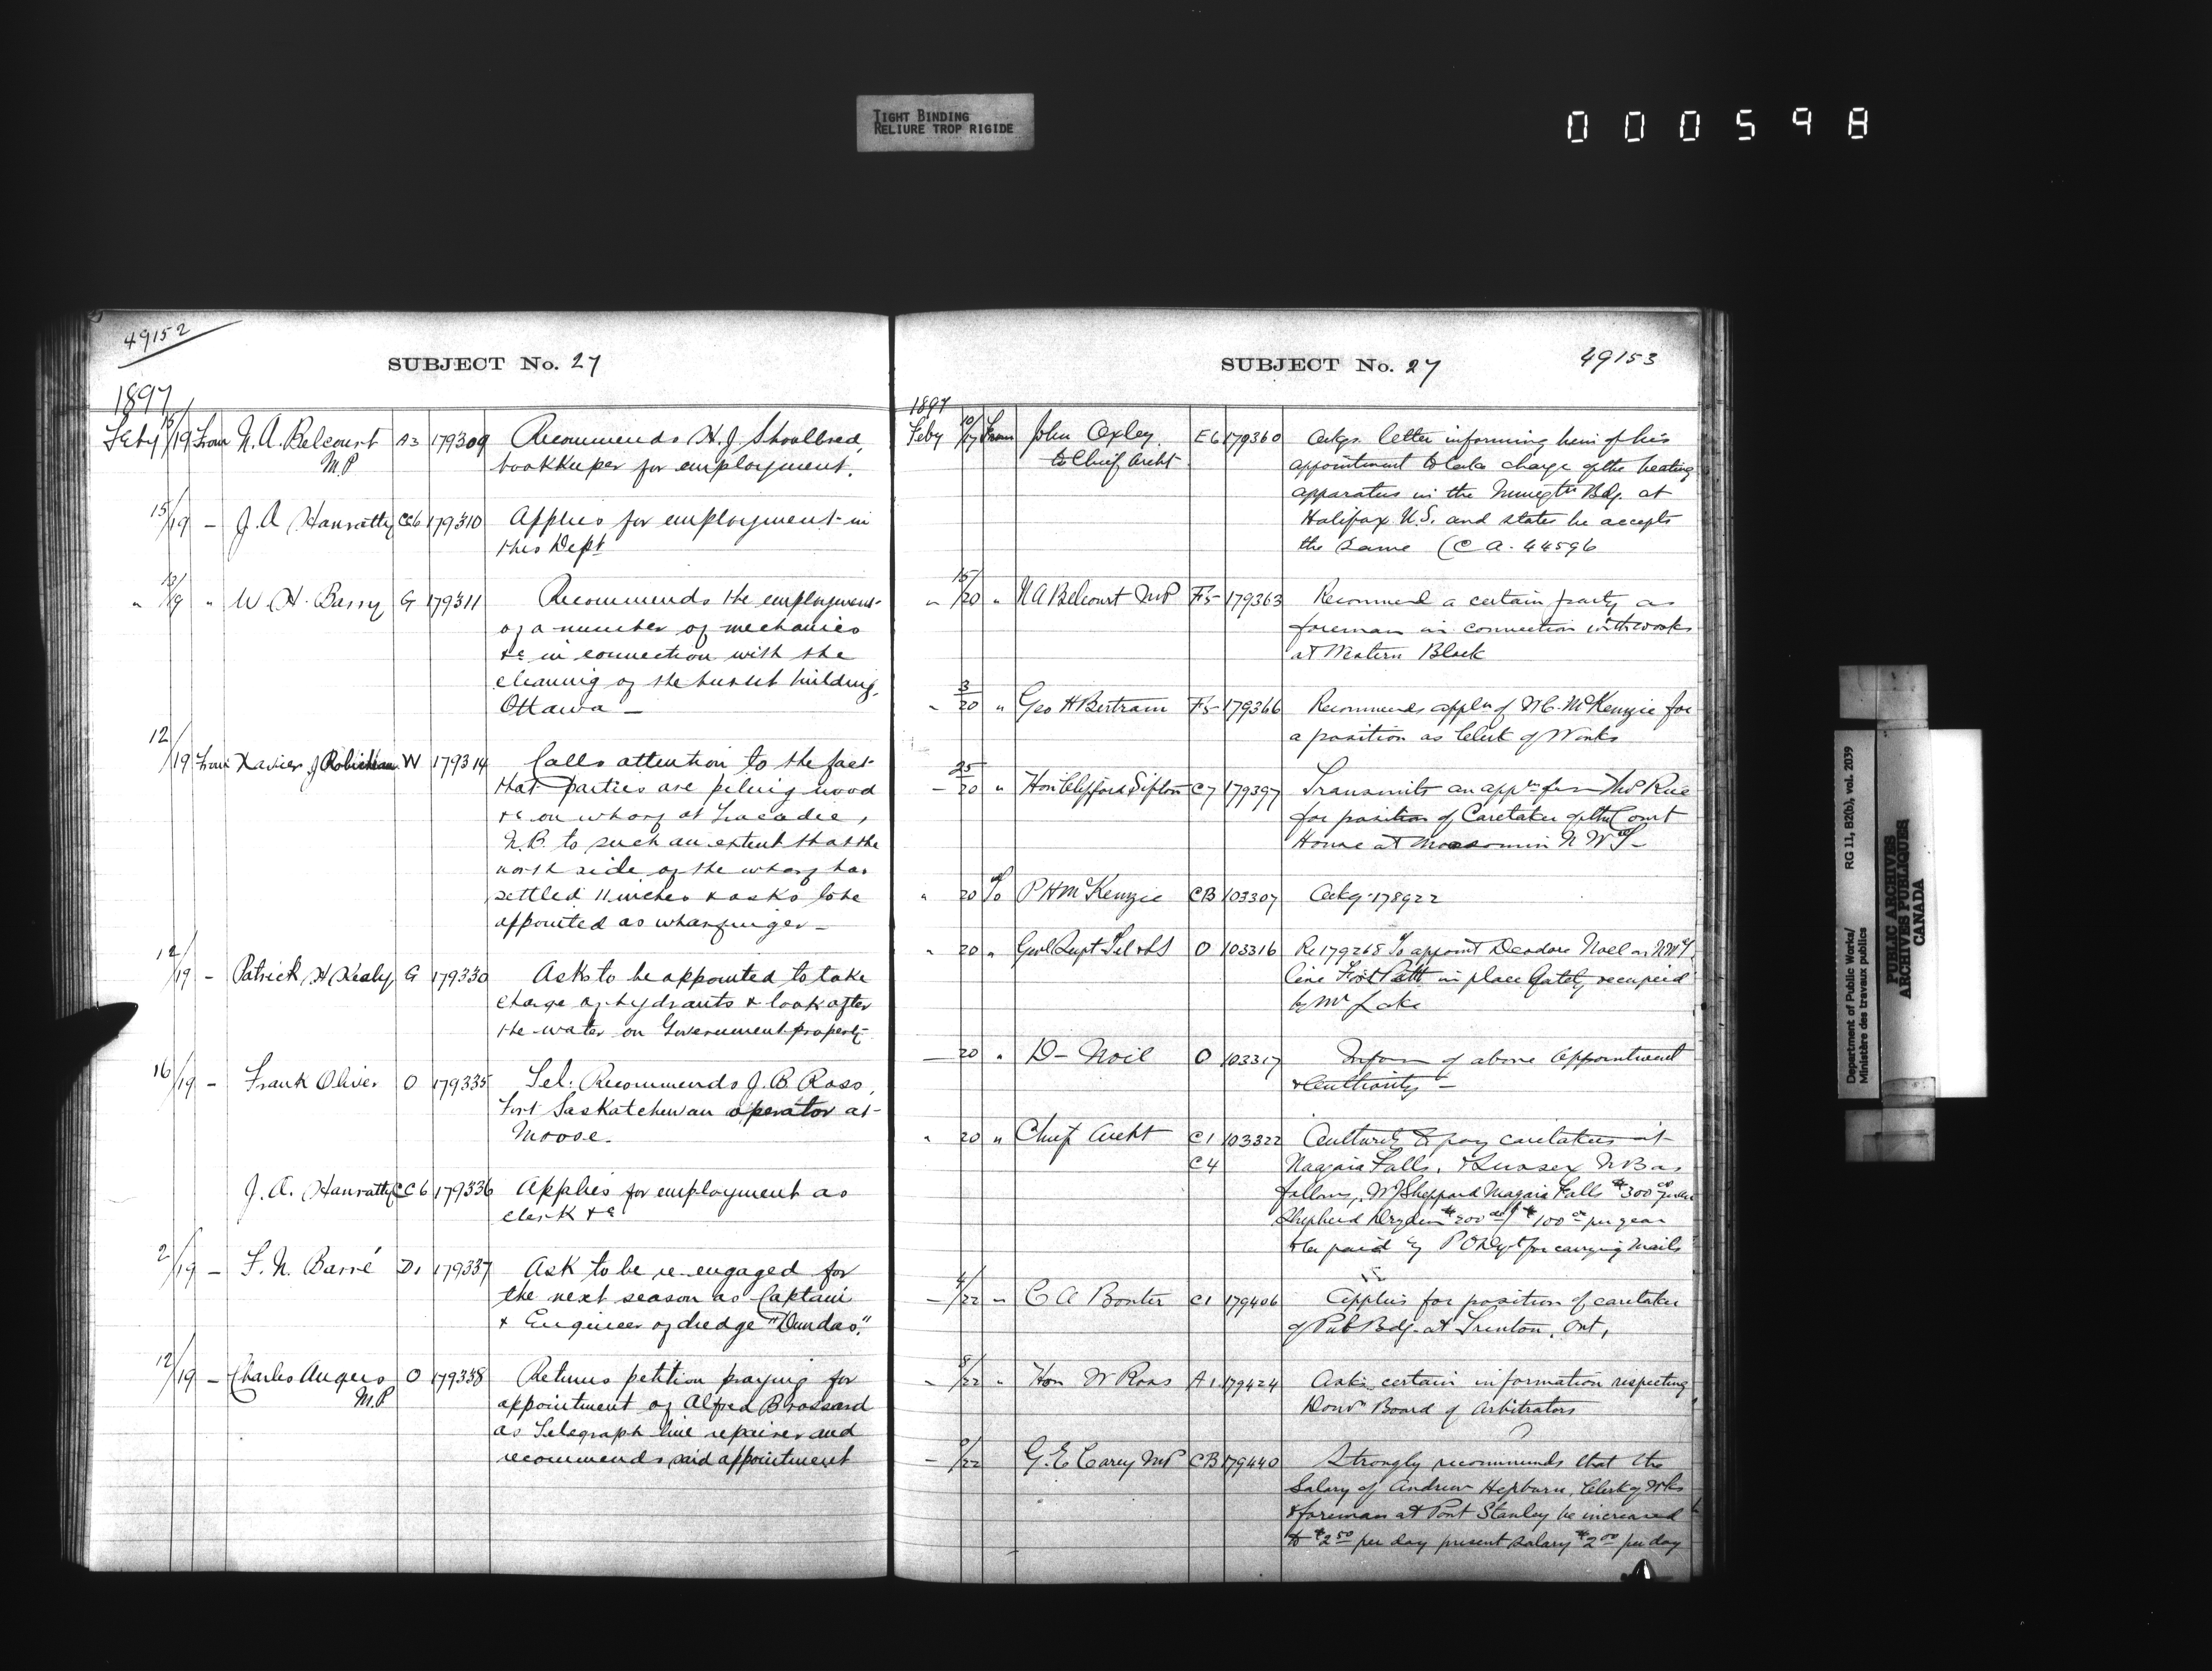 TIGHT BINDING
RELIURE TROP RIGIDE
000598
49152
SUBJECT No. 27
1897
Feby 15/19 From N. A. Belcourt A3 179309 Recommends H. J. Shoolbred,
M.P bookkeeper for employment.
15/19 - J. A Hanratty CC6 179310 Applies for employment in
this Dept
" 13/19 " W. H. Barry G 179311 Recommends the employment
of a number of mechanics
&c in connection with the
cleaning of the burnt building,
Ottawa —
12/19 From Xavier J Robicheau W 179314 Calls attention to the fact
that parties are piling wood
&c on wharf at Tracadie,
N.B. to such an extent that the
north side of the wharf has
settled 11 inches & asks to be
appointed as wharfinger —
12/19 - Patrick H Kealy G 179330 Asks to be appointed to take
charge of hydrants & look after
the water on Government property
16/19 - Frank Oliver O 179335 Tel: Recommends J. B. Ross,
Fort Saskatchewan operator at
Moose.
J. A. Hanratty CC6 179336 Applies for employment as
clerk &c
2/19 - F. N. Barré D1 179337 Ask to be re-engaged for
the next season as Captain
& Engineer of dredge "Dundas."
12/19 - Charles Angers O 179338 Returns petition praying for
M.P appointment of Alfred Brossard
as Telegraph line repairer and
recommends said appointment
SUBJECT No. 27 49153
1897
Feby 10/17 From John Oxley E6 179360 Ackgs. letter informing him of his
to Chief Archt appointment to take charge of the heating
apparatus in the Immigtn Bdg. at
Halifax N.S. and states he accepts
the same (C A. 44596
" 15/20 " N A Belcourt MP F5 179363 Recommend a certain party as
foreman in connection with works
at Western Block
" 3/20 " Geo H Bertram F5 179366 Recommends appln of McKenzie for
a position as Clerk of Works
- 25/20 " Hon Clifford Sifton C7 179397 Transmits an appn from Thos Rice
for position of Caretaker of the Court
House at Moosomin N W T —
" 20 To P H McKenzie CB 103307 Ackg 178922
" 20 " Genl Supt Tel &S O 103316 Re 179268 To appoint Deodore Noel on NWT.
line in place lately occupied
by Mr Lake
— 20 " D— Noil O 103317 Inform of above appointment
& Authority —
" 20 " Chief Archt C1 103322 Authority to pay caretakers at
C4 Niagara Falls, & Sussex N B as
follows, W Sheppard Niagara Falls $300 00
Shepherd Dryden $200 00 / $100 00 per year
to be paid by P O Dept for carrying mails
— 4/22 " C A Bonter C1 179406 Applies for position of caretaker
of Pub Bdg. at Trenton, Ont,
" 8/22 " Hon W Ross A1 179424 Asks certain information respecting
Domn Board of Arbitrators
— 9/22 G. E Carey MP CB 179440 Strongly recommends that the
Salary of Andrew Hepburn, Clerk of Wks
& foreman at Port Stanley be increased
to $2 50 per day present salary $2 00 per day
Department of Public Works/ RG 11, B2(b), vol. 2039
Ministère des travaux publics
PUBLIC ARCHIVES
ARCHIVES PUBLIQUES
CANADA